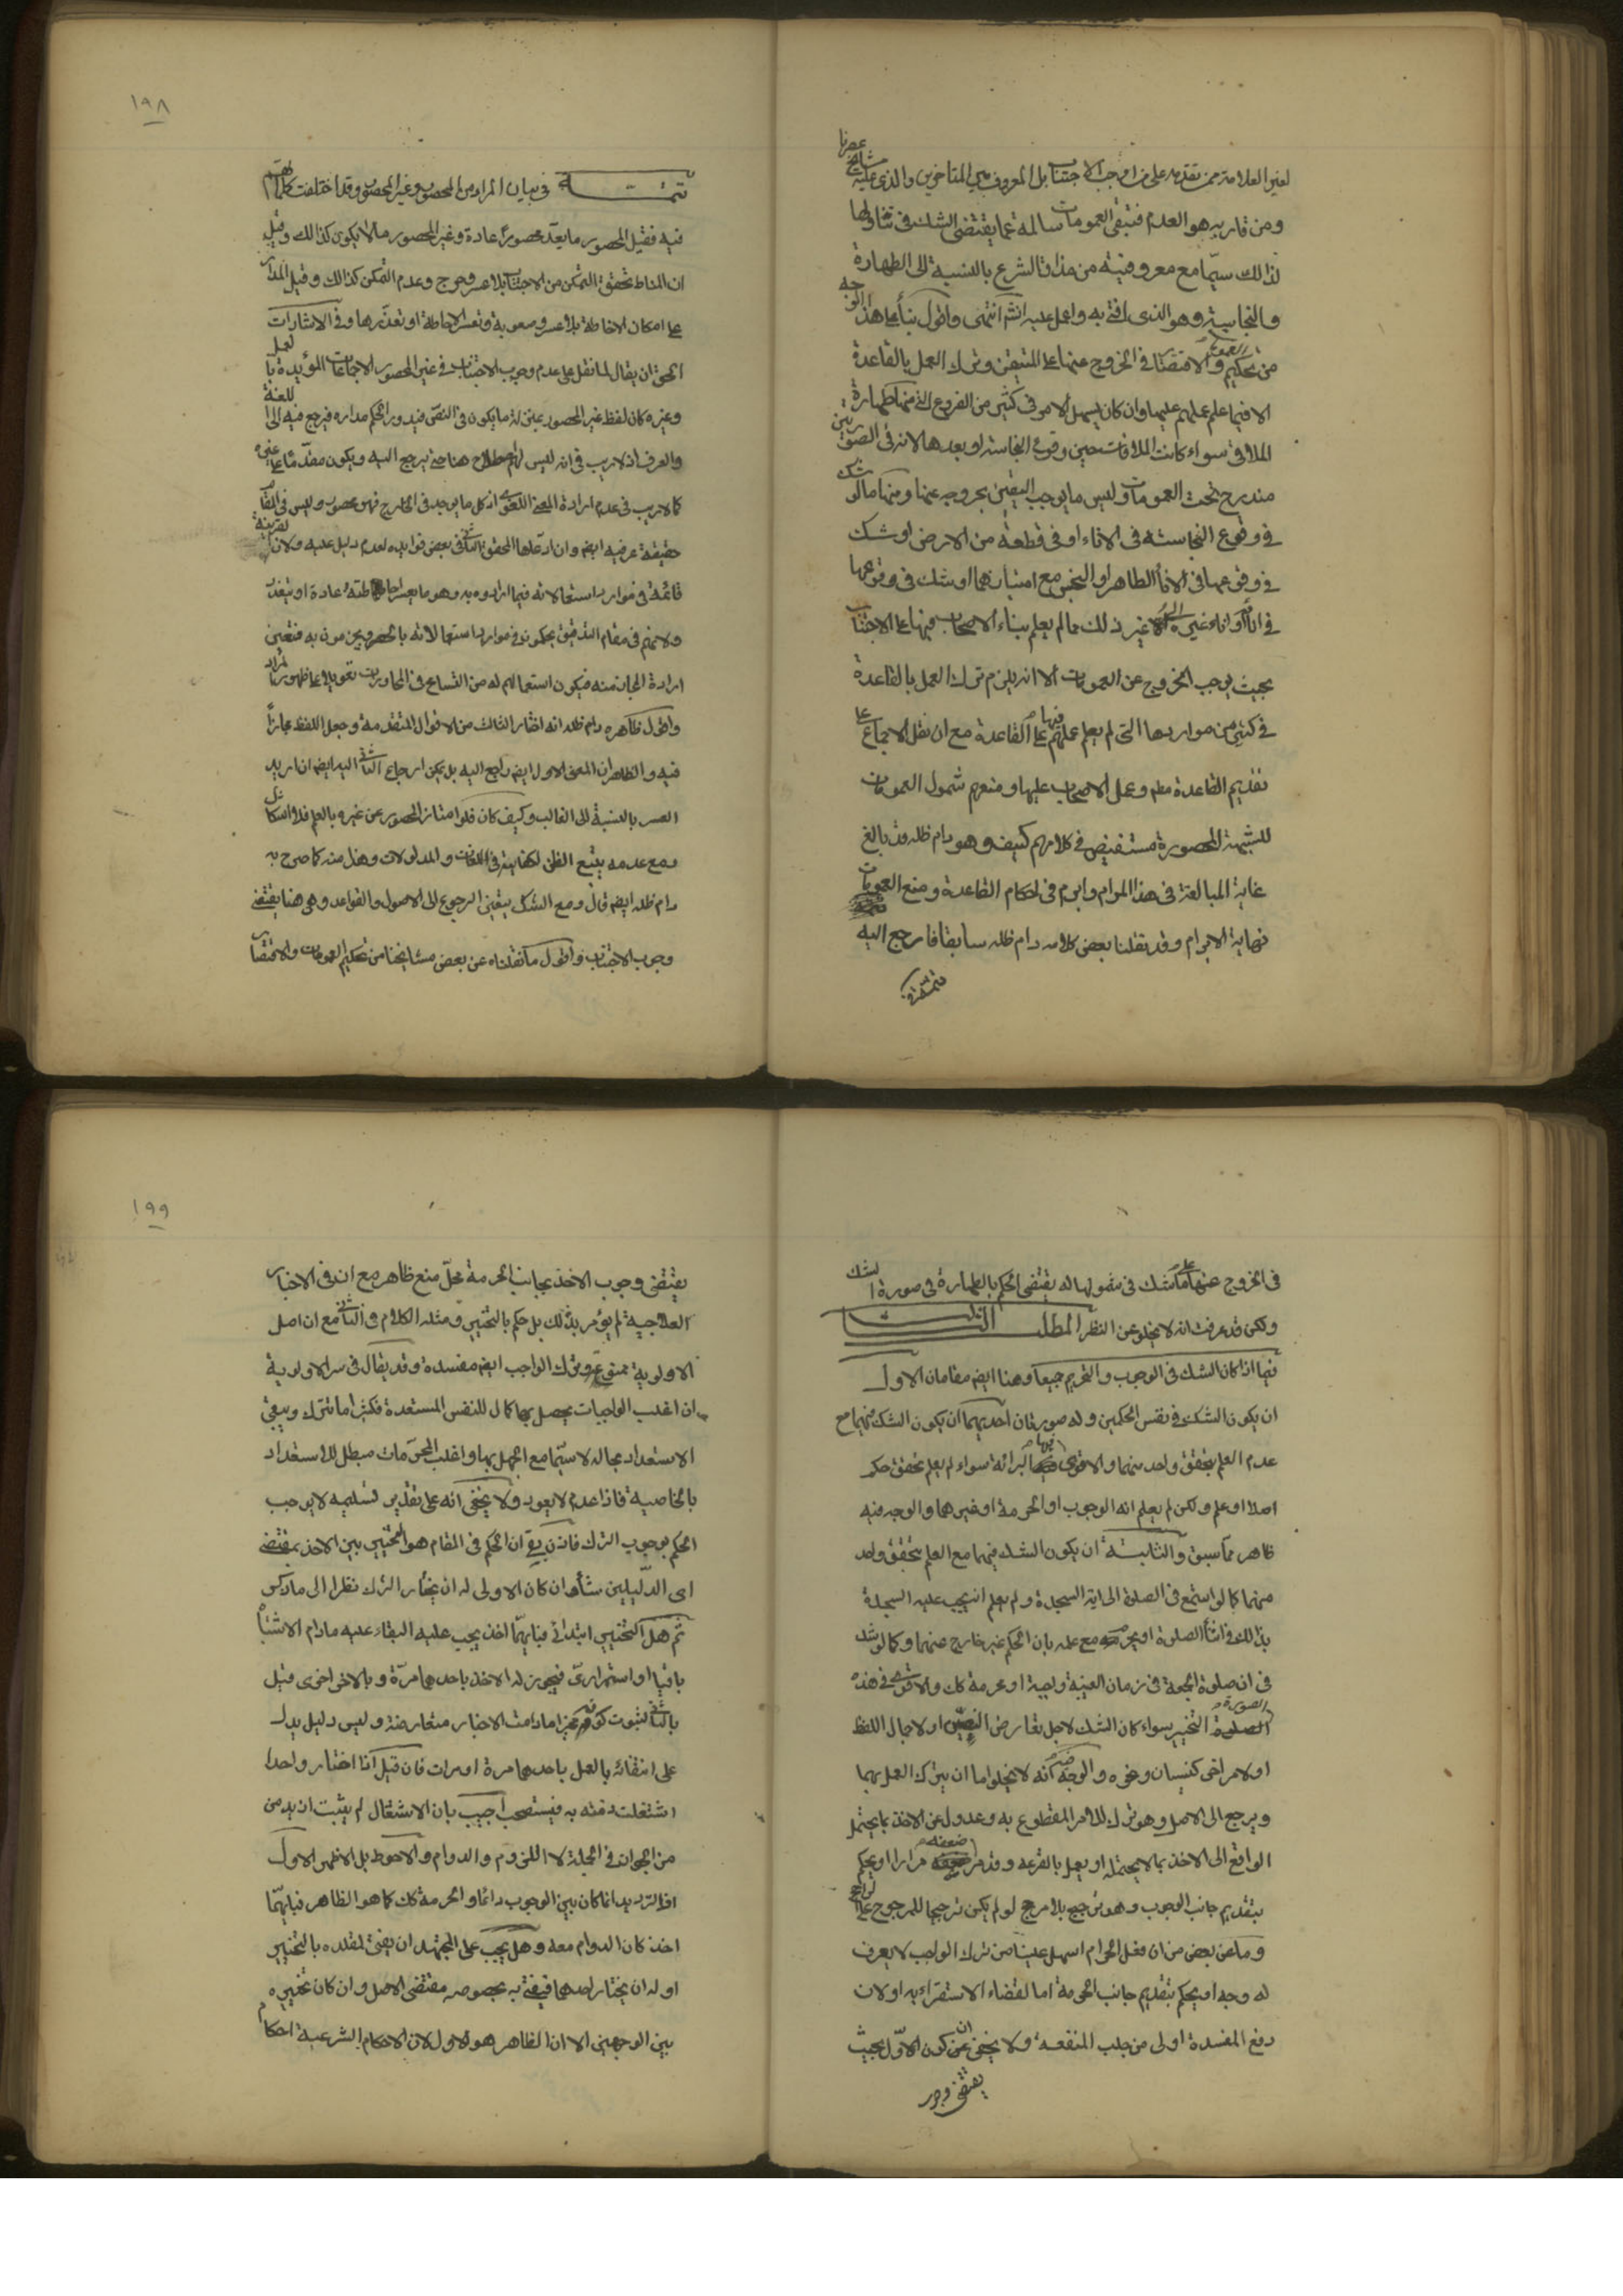 لغير العلامة ممن تقدمه على من اوجب الاجتناب بل المعروف بين المتاخرين والذى عليه مشايخ عصرنا
ومن قاربه هو العدم فتبقى العمومات سالمة عما يقتضى الشك فى تناولها
لذلك سيّما مع معروفيته من مذاق الشرع بالنسبة الى الطهارة
والنجاسة وهو الذى افتى به واعمل عليه انش انتهى واقول بناء على هذا الوجه
من تحكيم العمومات والاقتصار فى الخروج عنها على المتيقن وترك العمل بالقاعدة
الا فيما علم عملهم عليها وان كان يسهل الامر فى كثير من الفروع التى منها طهارة
الملاقى سواء كانت الملاقات حين وقوع النجاسة او بعدها لانه فى الصورتين
مندرج تحت العمومات وليس ما يوجب اليقين بخروجه عنها ومنها ما لو شك
فى وقوع النجاسة فى الاناء او فى قطعة من الارض او شك
فى وقوعها فى الاناء الطاهر او النجس مع اشتباههما او شك فى وقوعها
فى اناء او اناء غيره الى غير ذلك مما لم يعلم بناء الاصحاب فيها على الاجتناب
بحيث يوجب الخروج عن العمومات الا انه يلزم ترك العمل بالقاعدة
فى كثير من مواردها التى لم يعلم عملهم فيها على القاعدة مع ان نقل الاجماع على
تقديم القاعدة معلم وعمل الاصحاب عليها ومنعهم شمول العمومات
للشبهة المحصورة مستفيض فى كلامهم كيف وهو دام ظله قد بالغ
غاية المبالغة فى هذا المرام وابرم فى احكام القاعدة ومنع العمومات
نهاية الابرام وقد نقلنا بعض كلامه دام ظله سابقا فارجع اليه
تتمة فى
١٩٨
تتمة فى بيان المراد من المحصور وغير المحصور وقد اختلفت كلماتهم
فيه فقيل المحصور ما يعدّ محصوراً عادة وغير المحصور ما لا يكون كذالك وقيل
ان المناط تحقق التمكن من الاجتناب بلا عسر وحرج وعدم التمكن كذالك وقيل المدار
على امكان الاحاطة بلا عسر وصعوبة وتعسر الاحاطة او تعذرها وفى الاشارات
الحق ان يقال لما نقل على عدم وجوب الاجتناب فى غير المحصور الاجماعات المؤيدة بالعمل
وغيره كان لفظ غير المحصور بمنزلة ما يكون فى النصّ فيدور الحكم مداره فيرجع فيه الى اللغة
والعرف اذ لا ريب فى انه ليس لهم اصطلاح هنا حتى يرجع اليه ويكون مقدّماً على غيره
كما لا ريب فى عدم ارادة المعنى اللغوى اذ كل ما يوجد فى الخارج فهو محصور وليس فى المقام
حقيقة عرفية ايض وان ادعاها المحقق الثانى فى بعض فوائده لعدم دليل عليه ولان القرينة
قائمة فى موارد استعمالاته فيما ارادوه به وهو ما يعسر احاطته عادة او يتعذر
ولانهم فى مقام التدقيق يحكمون فى موارد استعمالاته بالحصر ويجزمون به فتعين
ارادة المجاز منه فيكون استعمالهم له من التسامح فى المحاورات تعويلا على ظهور المراد
واقول ظاهره دام ظله انه اختار الثالث من الاقوال المتقدمة وجعل اللفظ مجازاً
فيه والظاهر ان المعنى الاول ايض راجع اليه بل يمكن ارجاع الثانى اليه ايض ان اريد
العسر بالنسبة الى الغالب وكيف كان فلو امتاز المحصور عن غيره بالعلم فلا اشكال
ومع عدمه يتبع الظن لكفايته فى اللغات والمدلولات وهذا منه كما صرح به
دام ظله ايض قال ومع الشك يتعين الرجوع الى الاصول والقواعد وهى هنا يقتضى
وجوب الاجتناب واقول ما نقلناه عن بعض مشايخنا من تحكيم العمومات والاقتصار
فى الخروج عنها على ما شك فى شمولها له يقتضى الحكم بالطهارة فى صورة الشك
ولكن قد عرفت انه لا يخلو عن النظر المطلب الثالث
فيما اذا كان الشك فى الوجوب والتحريم جميعا وهنا ايض مقامان الاول
ان يكون الشك فى نفس الحكمين وله صورتان احديهما ان يكون الشك فيهما مع
عدم العلم بتحقق واحد منهما والاقوى فيها البرائة سواء لم يعلم تحقق حكم
اصلا او علم ولكن لم يعلم انه الوجوب او الحرمة او غيرهما والوجه فيه
ظاهر مما سبق والثانية ان يكون الشك فيهما مع العلم بتحقق واحد
منهما كما لو استمع فى الصلوة الى اية السجدة ولم يعلم انه يجب عليه السجدة
بذالك فى اثناء الصلوة او يحرم مع علمه بان الحكم غير خارج عنهما وكما لو شك
فى ان صلوة الجمعة فى زمان الغيبة واجبة او محرمة كك والاقوى فى هذه
الصورة التخيير سواء كان الشك لاجل تعارض النصّين او لاجمال اللفظ
او لامر اخر كنسيان ونحوه والوجه فيه انه لا يخلو اما ان يترك العمل بهما
ويرجع الى الاصل وهو ترك للامر المقطوع به وعدول عن الاخذ بما يحتمل
الواقع الى الاخذ بما لا يحتمله او يعمل بالقرعه وقد مر ضعفه مرارا او يحكم
بتقديم جانب الوجوب وهو ترجيح بلا مرجح لو لم يكن ترجيحا للمرجوح على الراجح
وما عن بعض من ان فعل الحرام اسهل علينا من ترك الواجب لا يعرف
له وجه او يحكم بتقديم جانب الحرمة اما لقضاء الاستقراء به او لان
دفع المفسدة اولى من جلب المنفعة ولا يخفى ان كون الاوّل بحيث
يقتضى وجوب
١٩٩
يقتضى وجوب الاخذ بجانب الحرمة محلّ منع ظاهر مع انه فى الاخبار
العلاجية لم يؤمر بذلك بل حكم بالتخيير ومثله الكلام فى الثانى مع ان اصل
الاولوية ممنوع وترك الواجب ايض مفسدة وقد يقال فى سر الاولوية
ان اغلب الواجبات يحصل بها كمال للنفس المستعدة فكثيرا ما تترك ويبقى
الاستعداد بحاله لا سيّما مع الجهل بها واغلب المحرّمات مبطل للاستعداد
بالخاصية فاذا عدم لا يعود ولا يخفى انه على تقدير تسليمه لا يوجب
الحكم بوجوب الترك فاذن يق ان الحكم فى المقام هو التخيير بين الاخذ بمقتضى
اى الدّليلين شاء وان كان الاولى له ان يختار الترك نظرا الى ما ذكر
ثم هل التخيير ابتدائى فبايّهما اخذ يجب عليه البقاء عليه مادام الاشتباه
باقيا او استمرارىّ فيجوز له الاخذ باحدهما مرّة وبالاخر اخرى قيل
بالثانى لثبوت كونه مخيرا مادامت الاخبار متعارضة وليس دليل يدل
على انتفائه بالعمل باحدهما مرة او مرات فان قيل اذا اختار واحدا
اشتغلت ذمته به فيستصحب اجيب بان الاشتغال لم يثبت ازيد من
من الجواز فى الجملة لا اللزوم والدوام والاحوط بل الاظهر الاول
اذ التردید انما كان بين الوجوب دائما والحرمة كك كما هو الظاهر فبايّهما
اخذ كان الدوام معه وهل يجب على المجتهد ان يفتى لمقلده بالتخيير
او له ان يختار احدهما فيفتى به بخصوصه مقتضى الاصل وان كان تخييره
بين الوجهين الا ان الظاهر هو الاول لان الاحكام الشرعية احكام